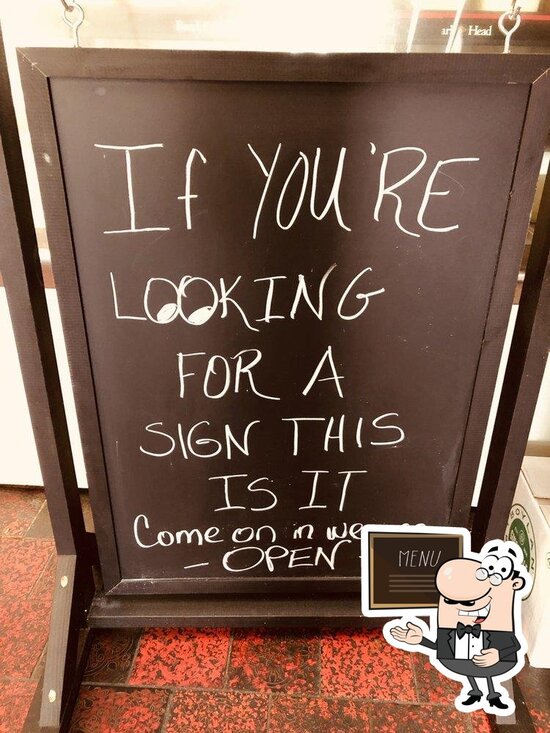 Head
If YOU'RE
LOOKING
FOR A
SIGN THIS
IS IT
Come on in we
- OPEN -
MENU